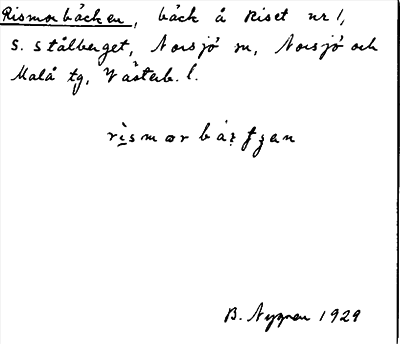 Rismorbäcken, bäck å Riset nr 1,
S. Stålberget, Norsjö sn, Norsjö och
Malå tg, Västerb. l.
B. Nygren 1929